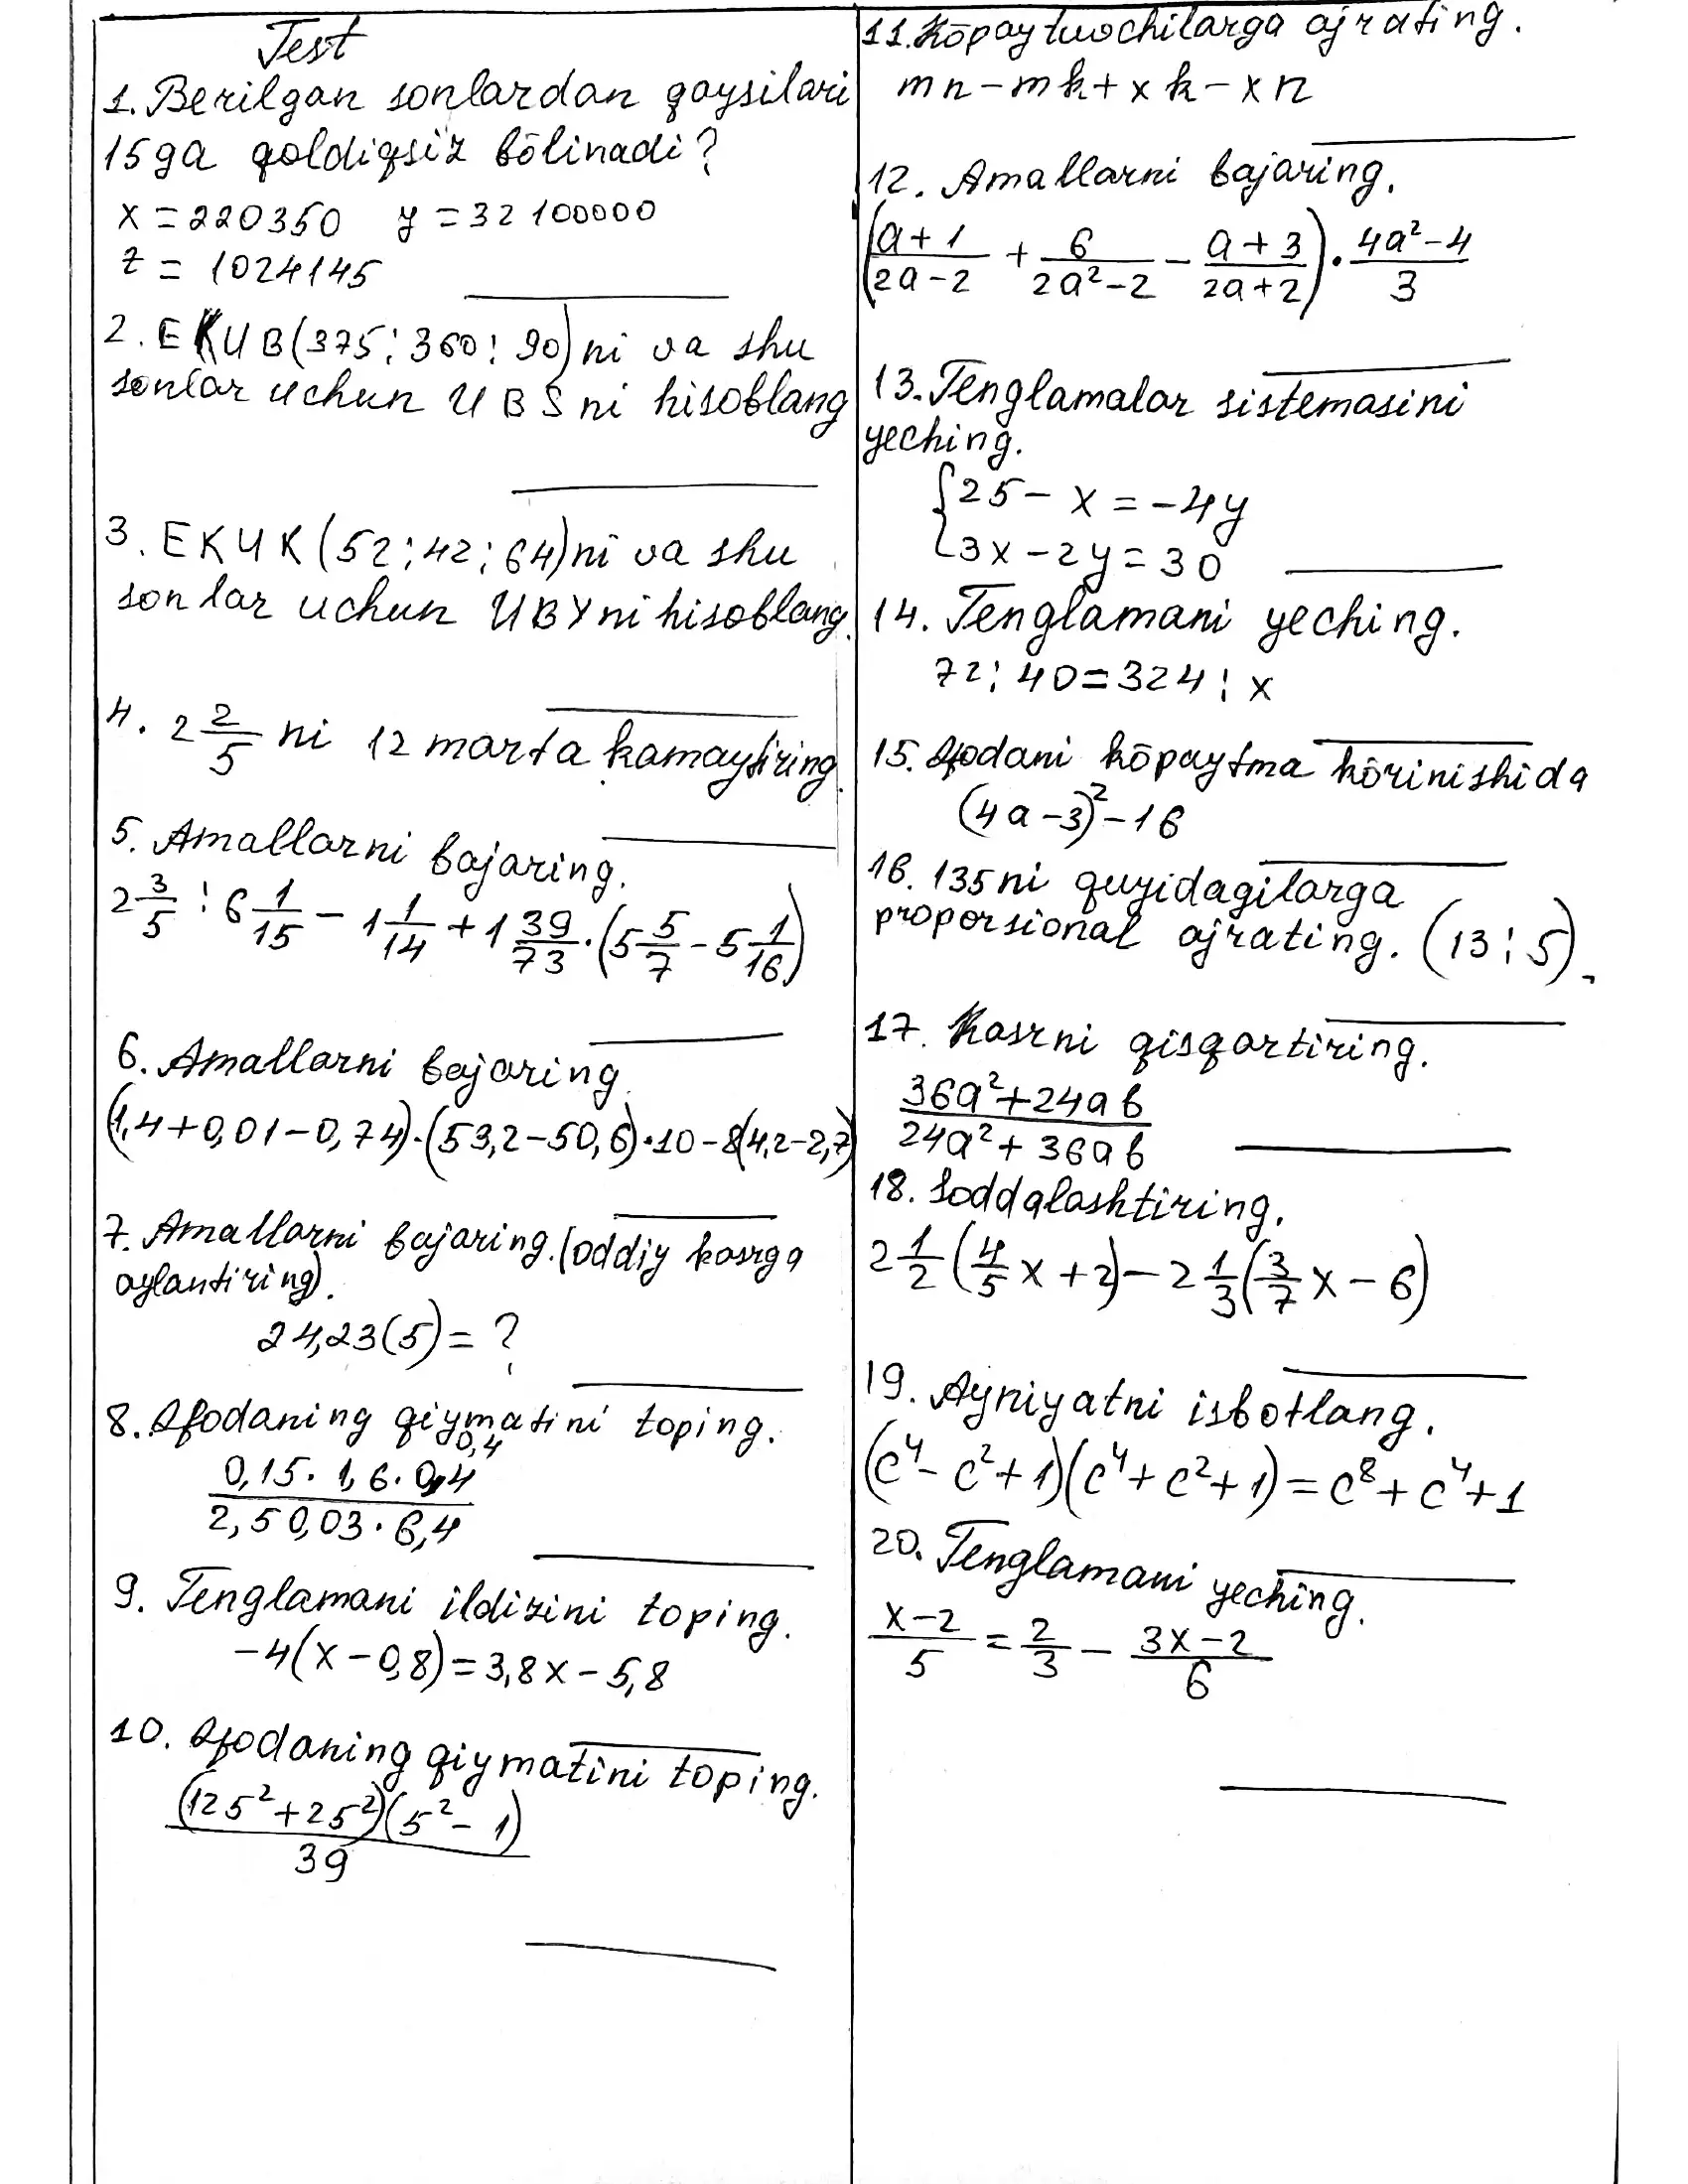 Test
1. Berilgan sonlardan qaysilari
15ga qoldiqsiz bōlinadi?
x = 220350 y = 32100000
z = 1024145
2. EKUB(375; 360; 90) ni va shu
sonlar uchun UBSni hisoblang
3. EKUK(52; 42; 64) ni va shu
sonlar uchun UBYni hisoblang.
4. 2 2/5 ni 12 marta kamaytiring.
5. Amallarni bajaring.
2 3/5 : 6 1/15 - 1 1/14 + 1 39/73 · (5 5/7 - 5 1/16)
6. Amallarni bajaring.
(1,4+0,01-0,74)·(53,2-50,6)·10-8(4,2-2,7)
7. Amallarni bajaring. (oddiy kasrga
aylantiring).
24,23(5) = ?
8. Ifodaning qiymatini toping.
0,4
0,15 · 1,6 · 0,4
2,5 0,03 · 6,4
9. Tenglamani ildizini toping.
-4(x-0,8) = 3,8x - 5,8
10. Ifodaning qiymatini toping.
(125² + 25²)(5² - 1)
39
11. Kōpaytuvchilarga ajrating.
mn - mk + xk - xn
12. Amallarni bajaring.
((a+1)/(2a-2) + 6/(2a²-2) - (a+3)/(2a+2)) · (4a²-4)/3
13. Tenglamalar sistemasini
yeching.
{25 - x = -4y
3x - 2y = 30
14. Tenglamani yeching.
72 : 40 = 324 : x
15. Ifodani kōpaytma kōrinishida
(4a-3)² - 16
16. 135ni quyidagilarga
proporsional ajrating. (13 : 5).
17. Kasrni qisqartiring.
36a² + 24ab
24a² + 36ab
18. Soddalashtiring.
2 1/2 (4/5 x + 2) - 2 1/3 (3/7 x - 6)
19. Ayniyatni isbotlang.
(c⁴ - c² + 1)(c⁴ + c² + 1) = c⁸ + c⁴ + 1
20. Tenglamani yeching.
(x-2)/5 = 2/3 - (3x-2)/6